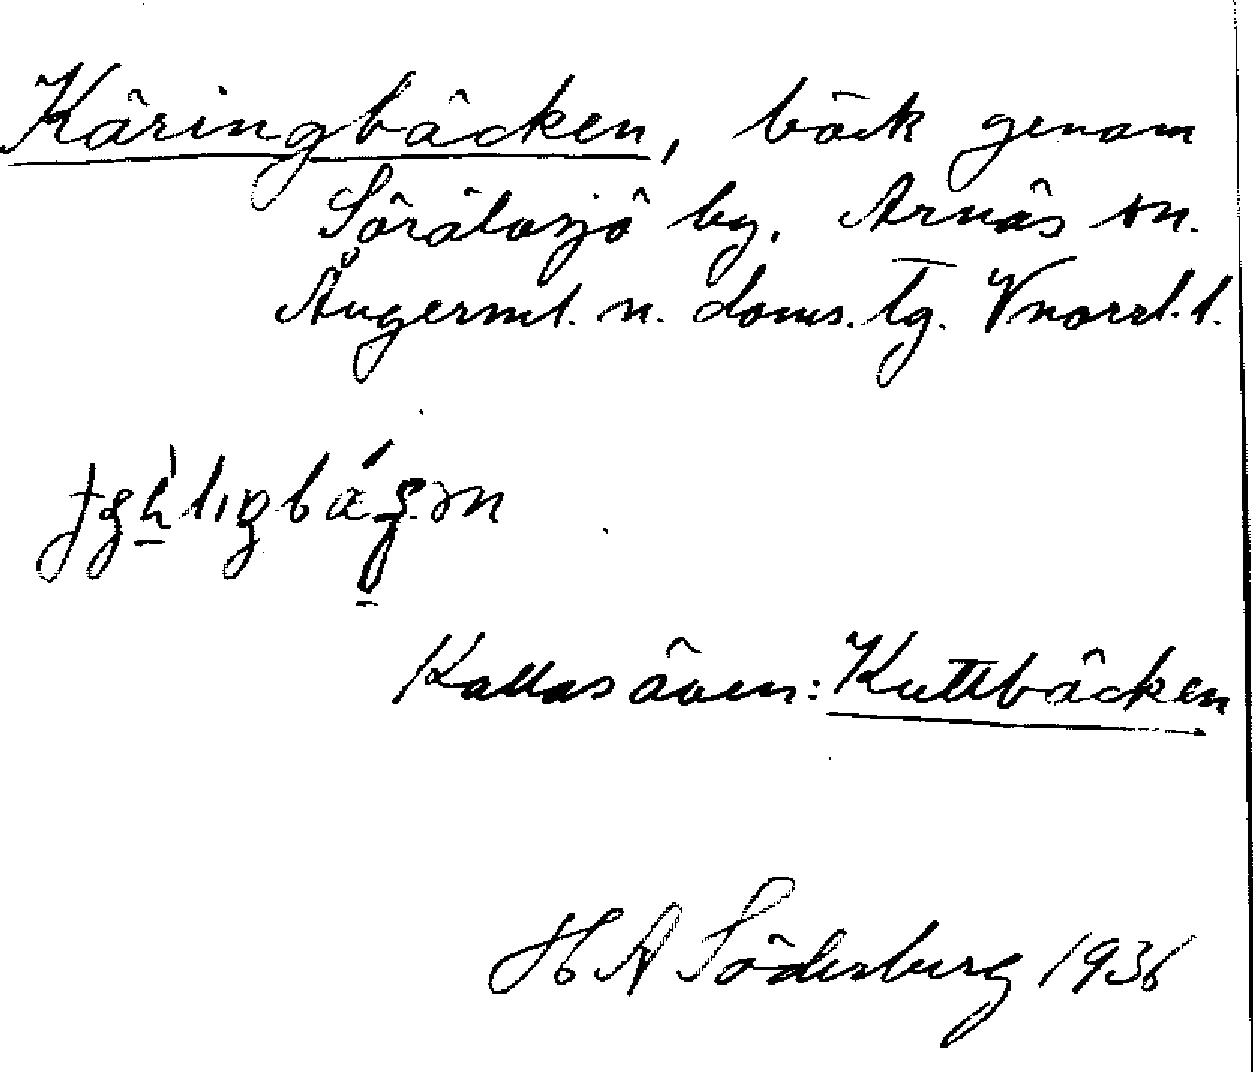 Käringbäcken, bäck genom
Sörålasjö by. Arnäs sn.
Ångerml. n. doms. tg. Vnorrl. l.
Kallas även: Kuttbäcken
H A Söderberg 1936